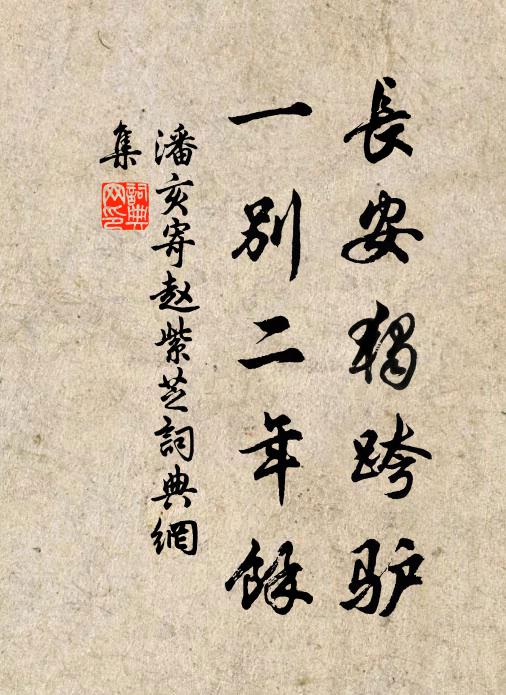 長安獨跨驴
一别二年餘
潘亥寄赵紫芝詞典網
集
詞典网印